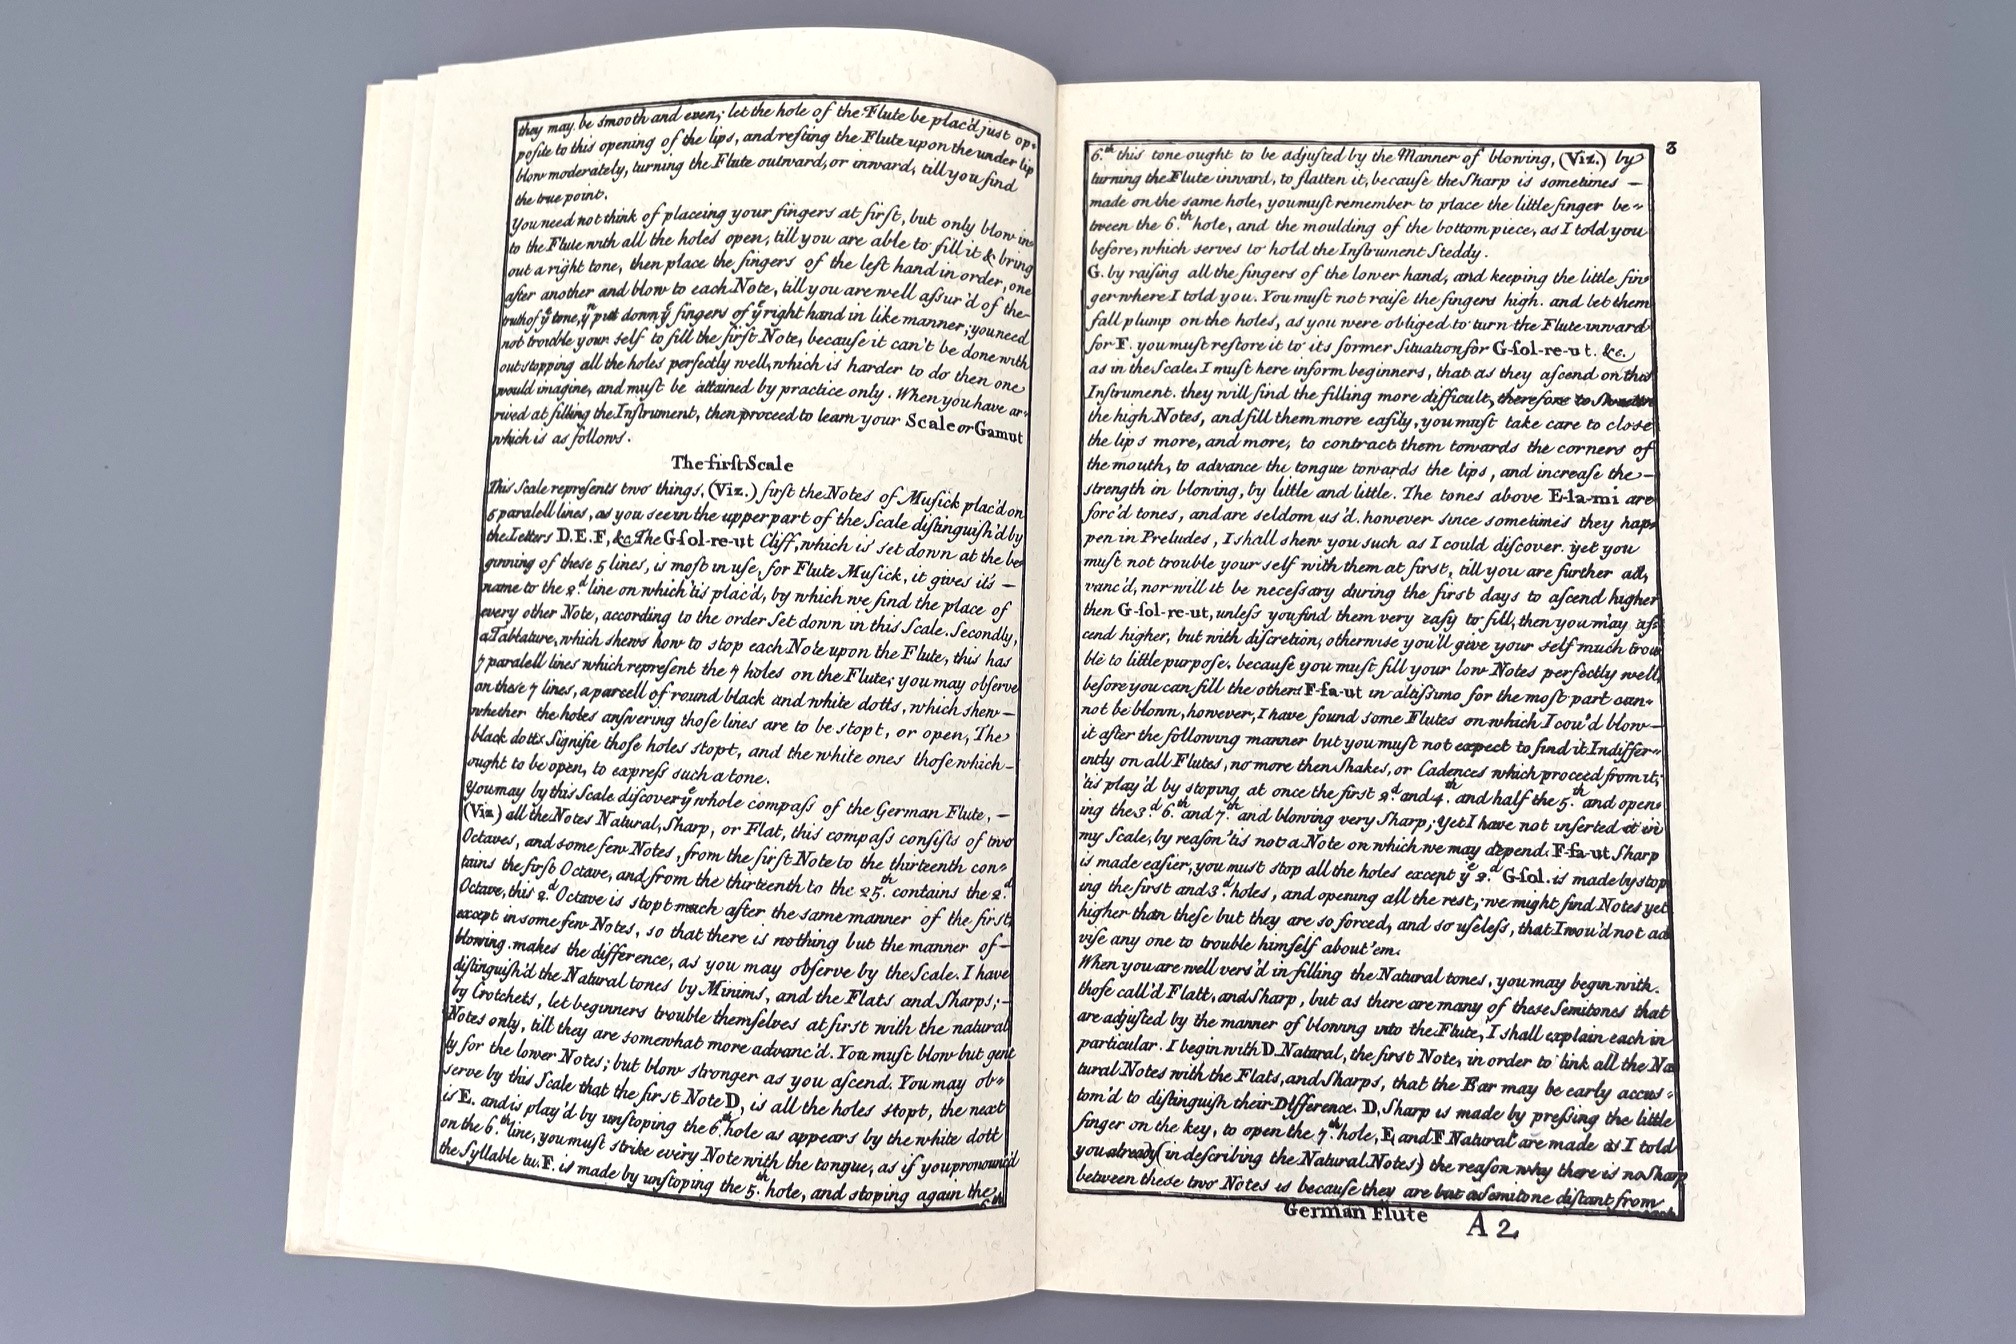 they may be smooth and even; let the hole of the Flute be plac'd just op-
poſite to this opening of the lips, and reſting the Flute upon the under lip
blow moderately, turning the Flute outward, or inward, till you find
the true point.
You need not think of placeing your fingers at firſt, but only blow in-
to the Flute with all the holes open, till you are able to fill it & bring
out a right tone, then place the fingers of the left hand in order, one
after another and blow to each Note, till you are well aſſur'd of the
truth of yᵉ tone, yⁿ put down yᵉ fingers of yᵉ right hand in like manner; you need
not trouble your self to fill the firſt Note, because it can't be done with
out stopping all the holes perfectly well, which is harder to do then one
would imagine, and muſt be attained by practice only. When you have ar-
rived at filling the Inſtrument, then proceed to learn your Scale or Gamut
which is as follows.
The firſt Scale
This Scale represents two things, (Viz.) firſt the Notes of Muſick plac'd on
5 paralell lines, as you see in the upper part of the Scale diſtinguiſh'd by
the Letters D. E. F, &c. The G-ſol-re-ut Cliff, which is set down at the be
ginning of these 5 lines, is moſt in uſe, for Flute Muſick, it gives it's —
name to the 2.ᵈ line on which 'tis plac'd, by which we find the place of
every other Note, according to the order set down in this Scale. Secondly,
a Tablature, which shews how to stop each Note upon the Flute, this has
7 paralell lines which repreſent the 7 holes on the Flute; you may obſerve
on these 7 lines, a parcell of round black and white dotts, which shew —
whether the holes anſwering thoſe lines are to be stopt, or open, The
black dotts Signifie thoſe holes stopt, and the white ones thoſe which —
ought to be open, to expreſs such a tone.
You may by this Scale diſcover yᵉ whole compaſs of the German Flute, —
(Viz) all the Notes Natural, Sharp, or Flat, this compaſs conſiſts of two
Octaves, and some few Notes, from the firſt Note to the thirteenth con-
tains the firſt Octave, and from the thirteenth to the 25.ᵗʰ contains the 2.ᵈ
Octave, this 2.ᵈ Octave is stopt much after the same manner of the first,
except in some few Notes, so that there is nothing but the manner of —
blowing makes the difference, as you may obſerve by the Scale. I have
diſtinguiſh'd the Natural tones by Minims, and the Flats and Sharps; —
by Crotchets, let beginners trouble themſelves at firſt with the natural
Notes only, till they are somewhat more advanc'd. You muſt blow but gent
ly for the lower Notes; but blow stronger as you aſcend. You may ob-
serve by this Scale that the firſt Note D, is all the holes stopt, the next
is E. and is play'd by unſtoping the 6.ᵗʰ hole as appears by the white dott
on the 6.ᵗʰ line, you muſt strike every Note with the tongue, as if you pronounc'd
the Syllable tu. F. is made by unſtoping the 5.ᵗʰ hole, and stoping again the
6.ᵗʰ
3
6.ᵗʰ this tone ought to be adjuſted by the Manner of blowing, (Viz.) by
turning the Flute inward, to flatten it, becauſe the Sharp is sometimes —
made on the same hole, you muſt remember to place the little finger be-
tween the 6.ᵗʰ hole, and the moulding of the bottom piece, as I told you
before, which serves to hold the Inſtrument Steddy.
G. by raiſing all the fingers of the lower hand, and keeping the little fin
ger where I told you. You muſt not raiſe the fingers high. and let them
fall plump on the holes, as you were obliged to turn the Flute inward
for F. you muſt reſtore it to its former Situation for G-ſol-re-ut. &c.
as in the Scale. I muſt here inform beginners, that as they aſcend on this
Inſtrument. they will find the filling more difficult, therefore to
the high Notes, and fill them more eaſily, you muſt take care to close
the lips more, and more, to contract them towards the corners of
the mouth, to advance the tongue towards the lips, and increaſe the —
strength in blowing, by little and little. The tones above E-la-mi are
forc'd tones, and are seldom us'd. however since sometimes they hap-
pen in Preludes, I shall shew you such as I could diſcover. yet you
muſt not trouble your self with them at first, till you are further ad,
vanc'd, nor will it be neceſſary during the first days to aſcend higher
then G-ſol-re-ut, unleſs you find them very eaſy to fill, then you may aſ-
cend higher, but with diſcretion, otherwise you'll give your self much trou
ble to little purpoſe. becauſe you muſt fill your low Notes perfectly well,
before you can fill the others F-fa-ut in altiſsimo for the moſt part can-
not be blown, however, I have found some Flutes on which I cou'd blow —
it after the following manner but you muſt not expect to find it Indiffer-
ently on all Flutes, no more then Shakes, or Cadences which proceed from it;
'tis play'd by stoping at once the first 2.ᵈ and 4.ᵗʰ and half the 5.ᵗʰ and open-
ing the 3.ᵈ 6.ᵗʰ and 7.ᵗʰ and blowing very Sharp; Yet I have not inſerted it in
my Scale, by reaſon 'tis not a Note on which we may depend. F-fa-ut Sharp
is made eaſier, you must stop all the holes except yᵉ 2.ᵈ G-ſol. is made by stop
ing the first and 3.ᵈ holes, and opening all the rest; we might find Notes yet
higher than theſe but they are so forced, and so uſeleſs, that I wou'd not ad
viſe any one to trouble himſelf about 'em.
When you are well vers'd in filling the Natural tones, you may begin with.
thoſe call'd Flatt, and Sharp, but as there are many of these Semitones that
are adjuſted by the manner of blowing into the Flute, I shall explain each in
particular. I begin with D Natural, the firſt Note, in order to link all the Na
tural Notes with the Flats, and Sharps, that the Ear may be early accus-
tom'd to diſtinguiſh their Difference. D, Sharp is made by preſſing the little
finger on the key, to open the 7.ᵗʰ hole, E, and F Natural are made as I told
you already (in deſcribing the Natural Notes) the reaſon why there is no Sharp
between these two Notes is becauſe they are but a Semitone diſtant from
German Flute A 2